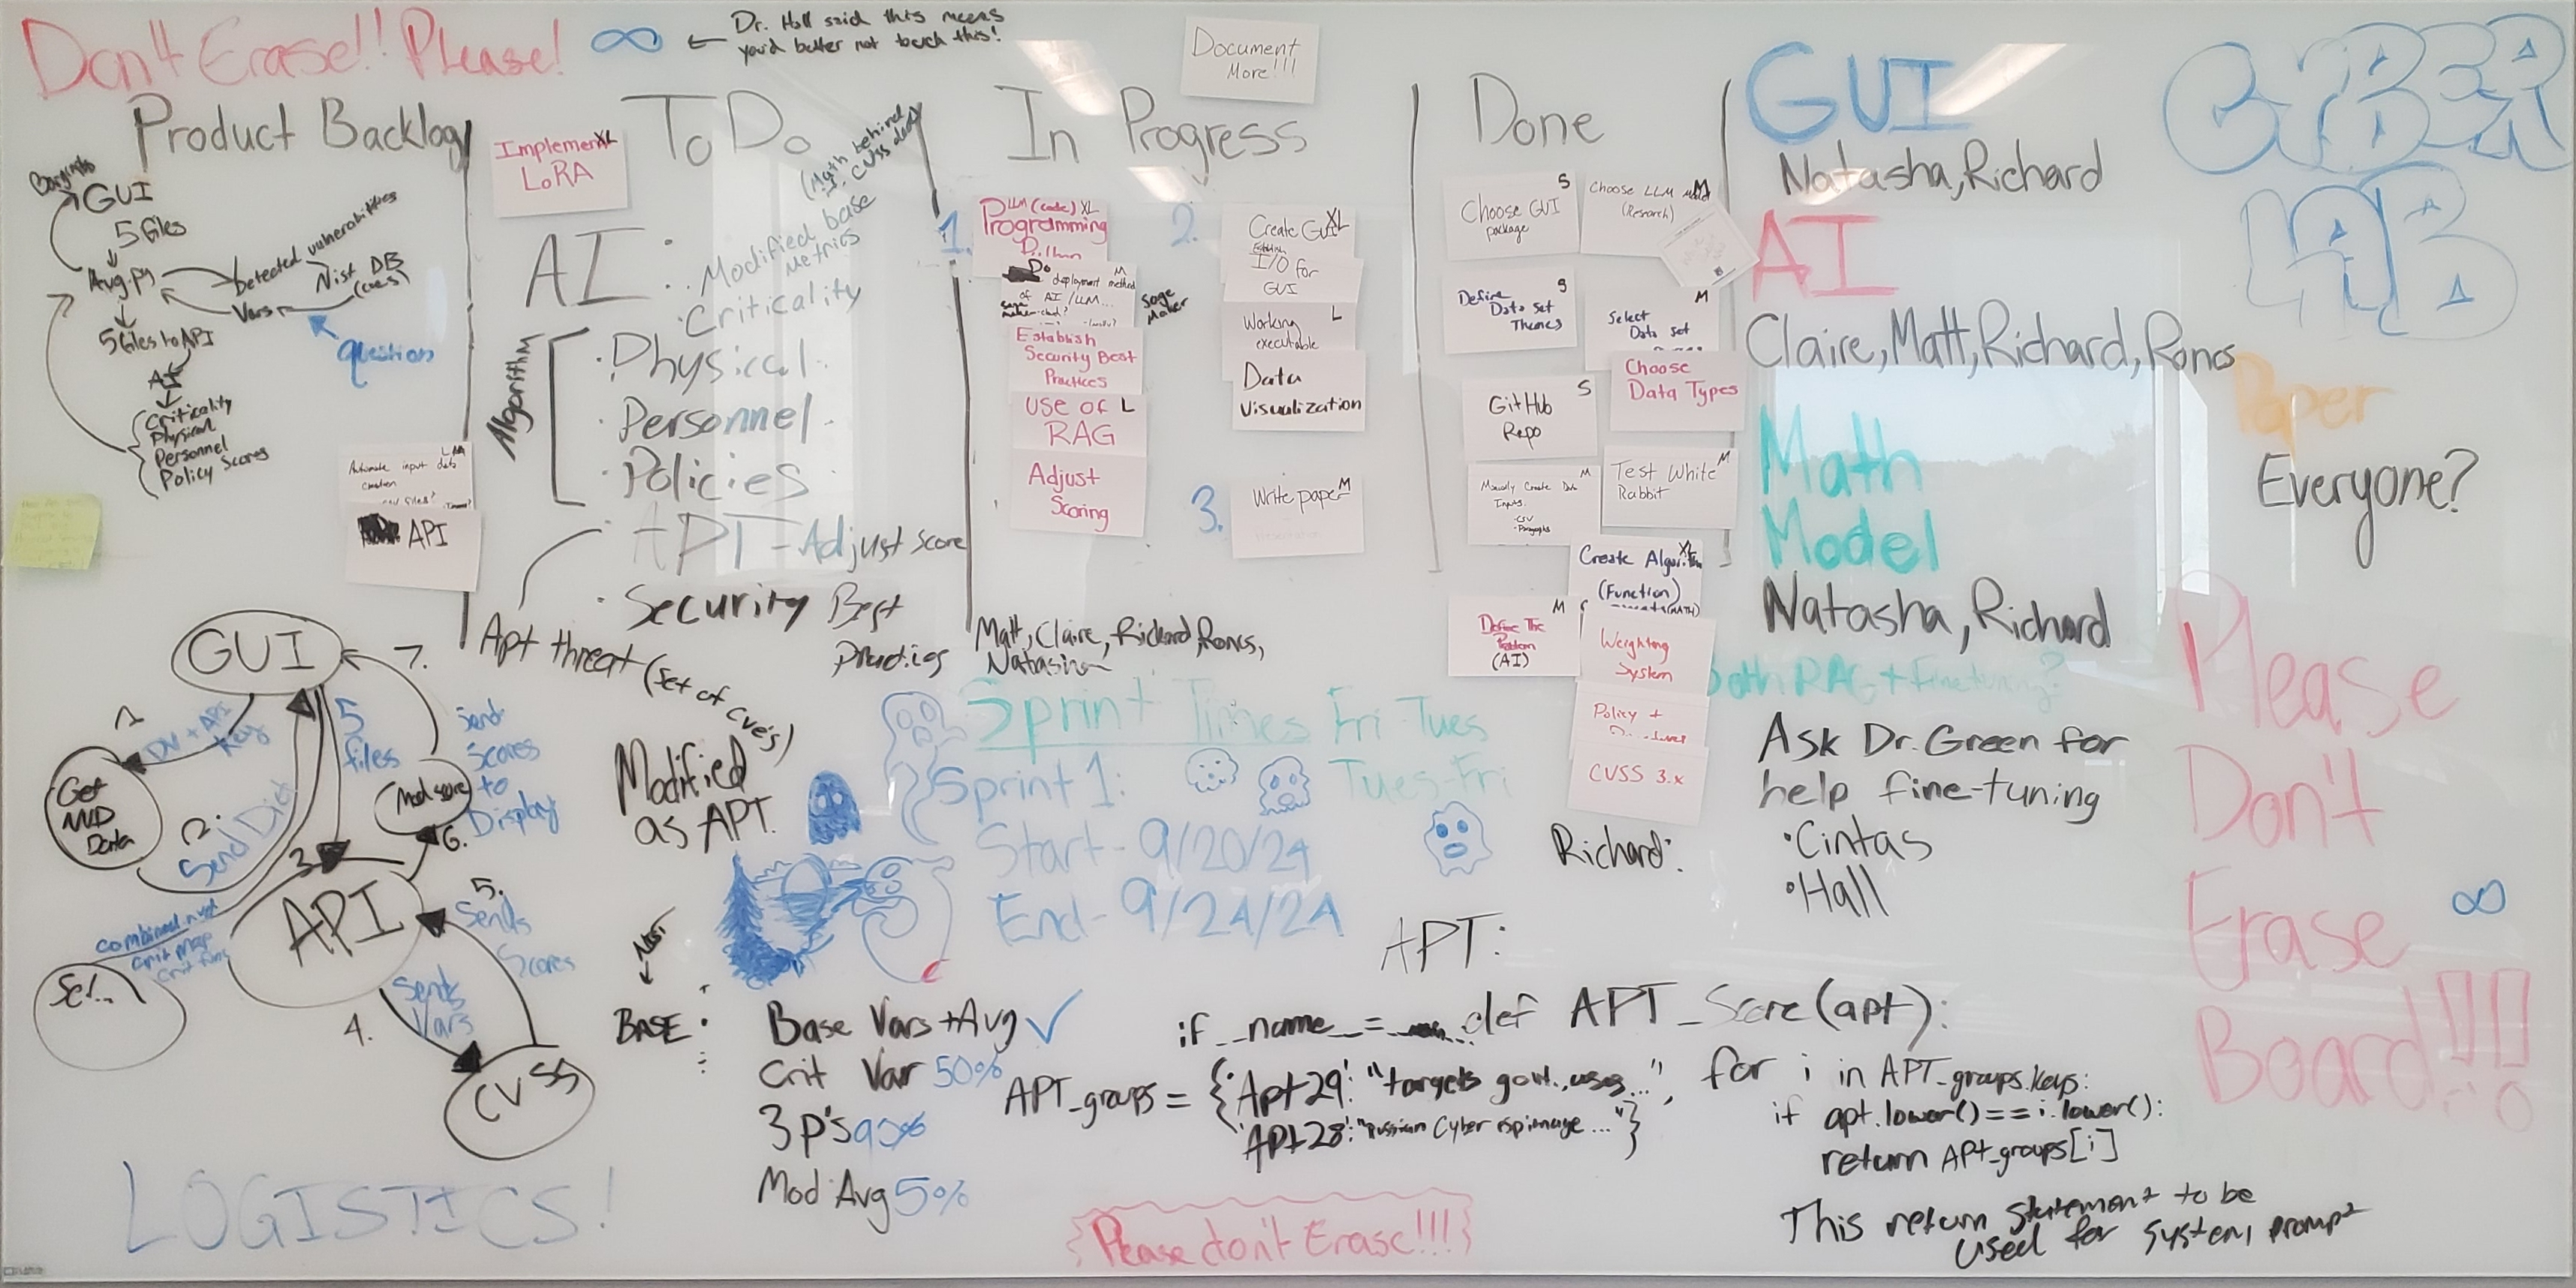 Don't Erase!! Please!
∞ ← Dr. Hall said this means
you'd better not touch this!
Document
More!!!
Product Backlog
GUI
5 files
Avg.py
Detected vulnerabilities
Nist DB
(cves)
Vars
question
5 files to API
AI
Criticality
Physical
Personnel
Policy Scores
Automate input data
creation
API
To Do
Implement XL
LoRA
(Math behind
CVSS
AI:
· Modified base
Metrics
· Criticality
Algorithm
· Physical
· Personnel
· Policies
APT - Adjust score
· Security Best
Practices
Apt threat (set of cve's)
Modified
as APT.
In Progress
1.
LLM (code) XL
Programming
Do M
deployment method
of AI/LLM...
Sage
Maker
Establish
Security Best
Practices
Use of L
RAG
Adjust
Scoring
2.
Create GUI XL
Establish
I/O for
GUI
Working L
executable
Data
Visualization
3.
Write paper M
Matt, Claire, Richard, Roncs,
Natasha
Done
Choose GUI S
package
Choose LLM Model M
(Research)
Define S
Data Set
Themes
Select M
Data Set
Choose
Data Types
GitHub S
Repo
Manually Create Data M
Inputs
-CSV
-Paragraphs
Test White M
Rabbit
Create Algorithm XL
(Function)
(MATH)
Define The M
(AI)
Weighting
System
Policy +
CVSS 3.x
Richard:
GUI
Natasha, Richard
AI
Claire, Matt, Richard, Roncs
Math
Model
Natasha, Richard
both RAG + Finetuning?
Ask Dr. Green for
help fine-tuning
· Cintas
· Hall
CYBER
LAB
Paper
Everyone?
Please
Don't
Erase ∞
Board!!!
Sprint Times Fri-Tues
Tues-Fri
Sprint 1:
Start - 9/20/24
End - 9/24/24
GUI
1
API
Key
Get
NVD
Data
2.
Send Dict
5
files
3
API
combined nvd
crit map
crit func
4.
Sends
Vars
CVSS
5.
Sends
Scores
6.
Mod score
7.
Send
Scores
to
Display
LOGISTICS!
BASE:
Base Vars + Avg ✓
Crit Var 50%
3 P's
Mod Avg 5%
APT:
if __name__ =
def APT_Score(apt):
APT_groups = {'Apt29': "targets govt., uses...",
'Apt28': "Russian Cyber espionage ..."}
for i in APT_groups.keys:
if apt.lower() == i.lower():
return APt_groups[i]
This return statement to be
used for system prompt
Please don't Erase!!!